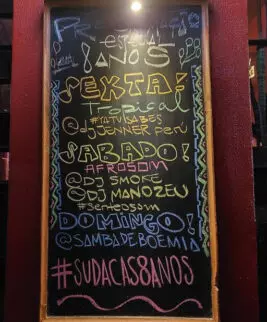 8 ANOS
SEXTA!
Tropical
#YATUSABES
@djJENNER PERU
SABADO!
AFROSOM
@DJ SMOKE
@DJ MANOZEU
#sentesom
DOMINGO!
@SAMBADEBOEMIA
#SUDACAS8ANOS